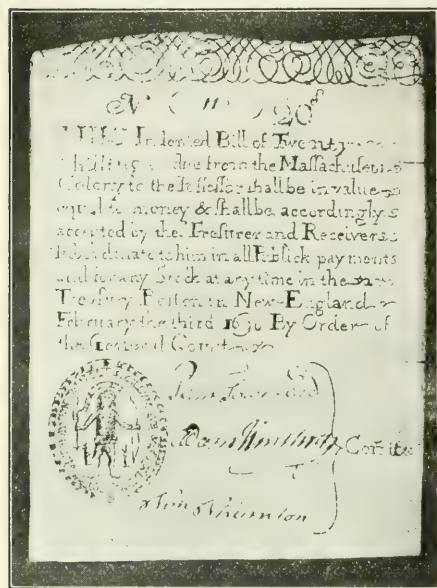 N° 20s
THIS Indented Bill of Twenty
Shillings due from the Massachusets
Colony to the Possessor shall be in value
equal to money & shall be accordingly
accepted by the Tresurer and Receivers
subordinate to him in all Publick payments
and for any Stock at any time in the
Treasury Boston in New-England
February the third 1690 By Order of
the General Court
Penn Townsend
Adam Winthrop Comitee
Tim Thornton